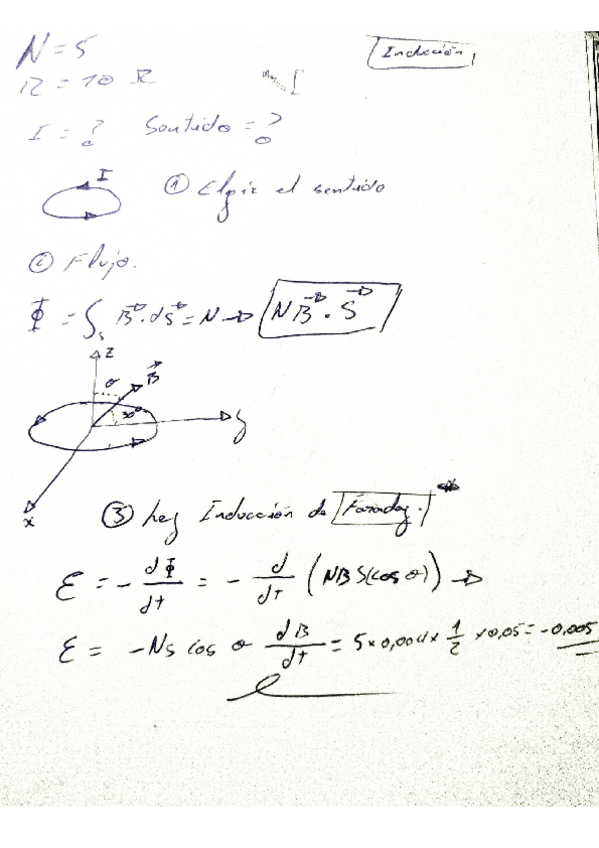 Inducción
N = 5
R = 10 Ω
I = ? Sentido = ?
I
① Elgir el sentido
② Flujo.
Φ = ∫s B⃗·dS⃗ = N → N B⃗ · S⃗
z
θ B⃗
30°
y
x
③ Ley Inducción de Faraday. *
ε = - dΦ/dt = - d/dt (NBS(cos θ)) →
ε = -NS cos θ dB/dt = 5 × 0,004 × 1/2 × 0,05 = -0,005